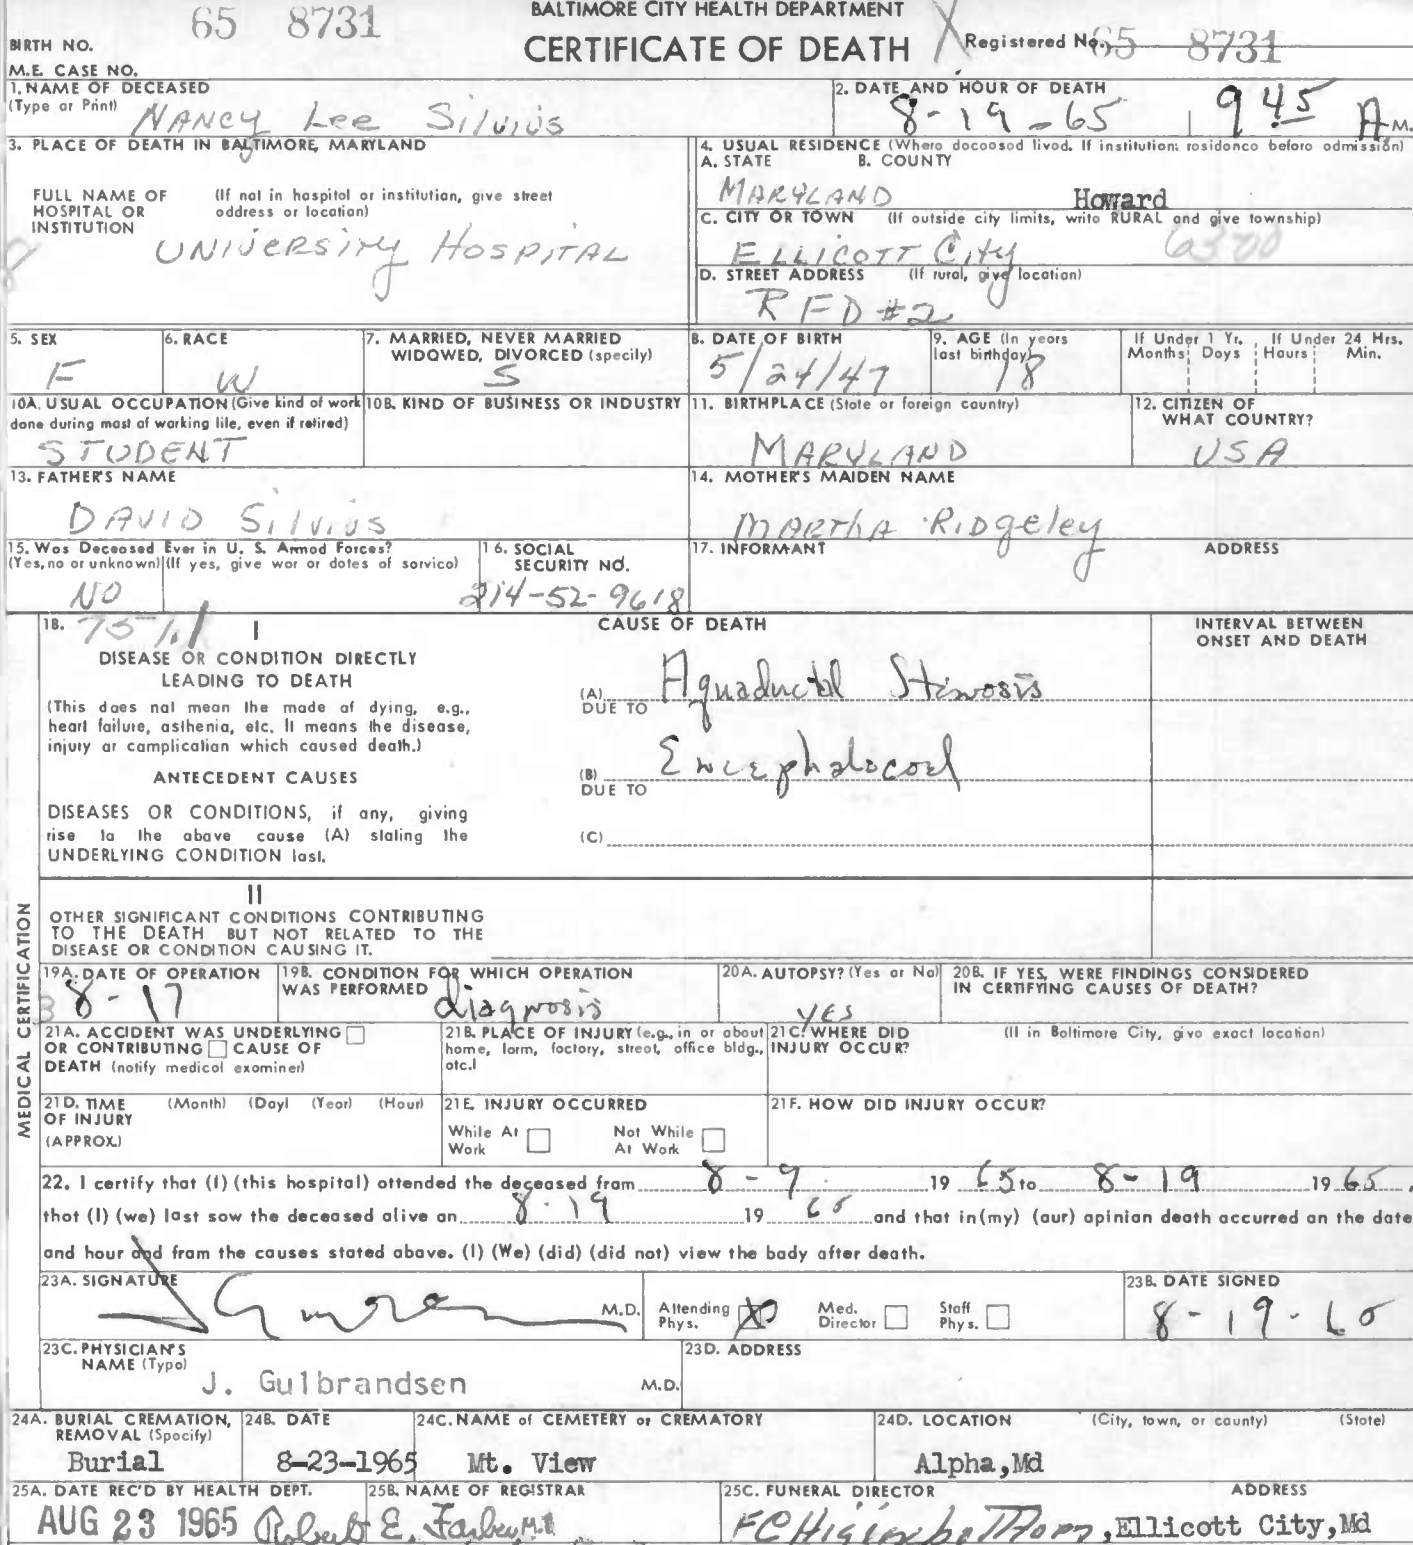 BALTIMORE CITY HEALTH DEPARTMENT
65 8731
BIRTH NO.
CERTIFICATE OF DEATH
Registered No. 65 8731
M.E. CASE NO.
1. NAME OF DECEASED
(Type or Print)
Nancy Lee Silvius
2. DATE AND HOUR OF DEATH
8-19-65 9 45 A M.
3. PLACE OF DEATH IN BALTIMORE, MARYLAND
FULL NAME OF HOSPITAL OR INSTITUTION
(If not in hospital or institution, give street address or location)
UNIVERSITY HOSPITAL
4. USUAL RESIDENCE (Where deceased lived. If institution: residence before admission)
A. STATE B. COUNTY
MARYLAND Howard
C. CITY OR TOWN (If outside city limits, write RURAL and give township)
ELLICOTT City 6300
D. STREET ADDRESS (If rural, give location)
RFD #2
5. SEX
F
6. RACE
W
7. MARRIED, NEVER MARRIED
WIDOWED, DIVORCED (specify)
S
8. DATE OF BIRTH
5/24/47
9. AGE (In years
last birthday)
18
If Under 1 Yr. If Under 24 Hrs.
Months Days Hours Min.
10A. USUAL OCCUPATION (Give kind of work
done during most of working life, even if retired)
STUDENT
10B. KIND OF BUSINESS OR INDUSTRY
11. BIRTHPLACE (State or foreign country)
MARYLAND
12. CITIZEN OF
WHAT COUNTRY?
USA
13. FATHER'S NAME
DAVID Silvius
14. MOTHER'S MAIDEN NAME
MARTHA RIDgeley
15. Was Deceased Ever in U. S. Armed Forces?
(Yes, no or unknown) (If yes, give war or dates of service)
NO
16. SOCIAL
SECURITY NO.
214-52-9618
17. INFORMANT ADDRESS
18. 75 I
CAUSE OF DEATH
INTERVAL BETWEEN
ONSET AND DEATH
DISEASE OR CONDITION DIRECTLY
LEADING TO DEATH
(This does not mean the mode of dying, e.g.,
heart failure, asthenia, etc. It means the disease,
injury or complication which caused death.)
ANTECEDENT CAUSES
DISEASES OR CONDITIONS, if any, giving
rise to the above cause (A) stating the
UNDERLYING CONDITION last.
(A) Aquaductal Stenosis
DUE TO
(B) Encephalocoel
DUE TO
(C)
II
OTHER SIGNIFICANT CONDITIONS CONTRIBUTING
TO THE DEATH BUT NOT RELATED TO THE
DISEASE OR CONDITION CAUSING IT.
MEDICAL CERTIFICATION
19A. DATE OF OPERATION
8-17
19B. CONDITION FOR WHICH OPERATION
WAS PERFORMED
diagnosis
20A. AUTOPSY? (Yes or No)
yes
20B. IF YES, WERE FINDINGS CONSIDERED
IN CERTIFYING CAUSES OF DEATH?
21A. ACCIDENT WAS UNDERLYING
OR CONTRIBUTING CAUSE OF
DEATH (notify medical examiner)
21B. PLACE OF INJURY (e.g., in or about
home, farm, factory, street, office bldg.,
etc.)
21C. WHERE DID (If in Baltimore City, give exact location)
INJURY OCCUR?
21D. TIME (Month) (Day) (Year) (Hour)
OF INJURY
(APPROX.)
21E. INJURY OCCURRED
While At Work Not While At Work
21F. HOW DID INJURY OCCUR?
22. I certify that (I) (this hospital) attended the deceased from 8-9 19 65 to 8-19 19 65,
that (I) (we) last saw the deceased alive on 8-19 19 65 and that in (my) (our) opinion death occurred on the date
and hour and from the causes stated above. (I) (We) (did) (did not) view the body after death.
23A. SIGNATURE
M.D.
Attending Phys. Med. Director Staff Phys.
23B. DATE SIGNED
8-19-65
23C. PHYSICIAN'S
NAME (Type)
J. Gulbrandsen M.D.
23D. ADDRESS
24A. BURIAL CREMATION,
REMOVAL (Specify)
Burial
24B. DATE
8-23-1965
24C. NAME of CEMETERY or CREMATORY
Mt. View
24D. LOCATION (City, town, or county) (State)
Alpha, Md
25A. DATE REC'D BY HEALTH DEPT.
AUG 23 1965
25B. NAME OF REGISTRAR
Robert E. Farber M.D.
25C. FUNERAL DIRECTOR ADDRESS
FC Higinbothom, Ellicott City, Md